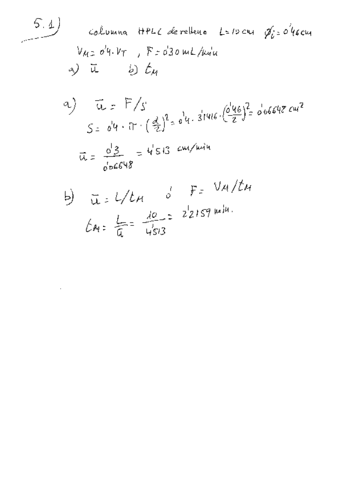 5.1) columna HPLC de relleno L=10cm Øi=0'46cm
VM=0'4·VT , F=0'30 mL/min
a) ū b) tM
a) ū = F/S
S=0'4·π·(d/2)²=0'4·3'1416·(0'46/2)²=0'06648 cm²
ū = 0'3/0'06648 = 4'513 cm/min
b) ū = L/tM ó F = VM/tM
tM = L/ū = 10/4'513 = 2'2159 min.